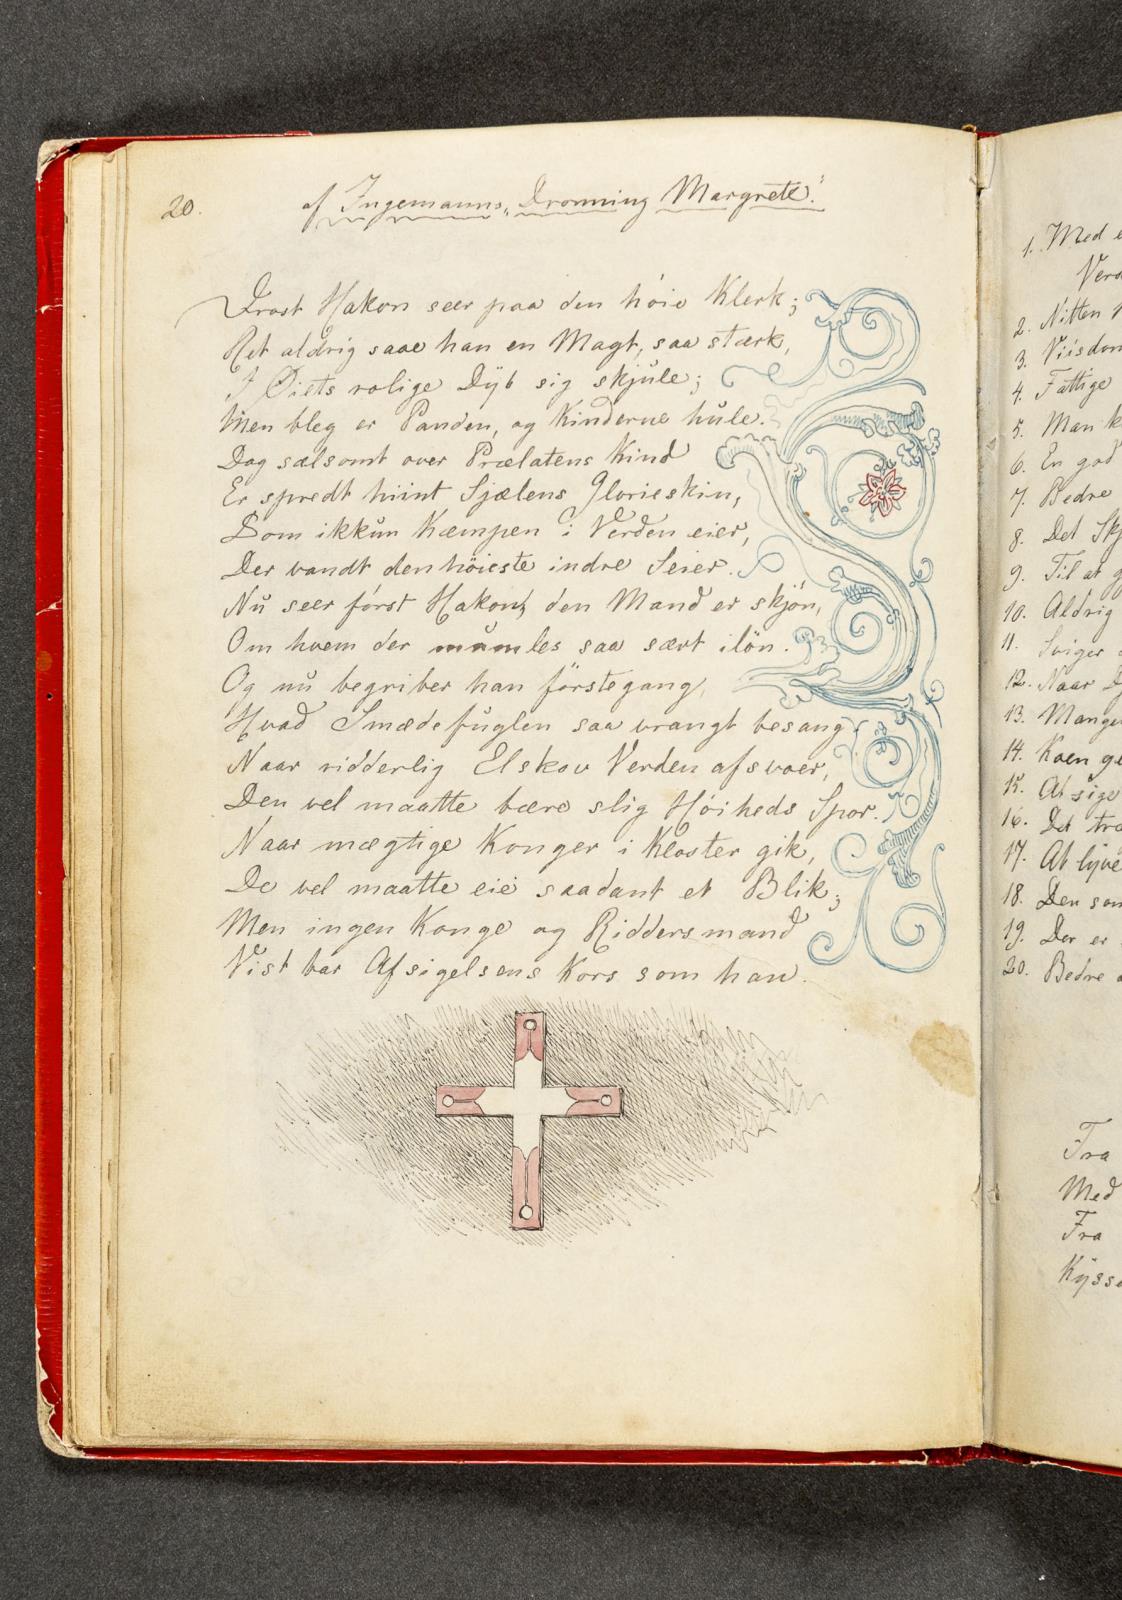 20.
af Ingemanns „Dronning Margrete."
Drost Hakon seer paa den höie Klerk;
Ret aldrig saae han en Magt, saa stærk,
I Öiets rolige Dÿb sig skjule;
Men bleg er Panden, og Kinderne hule.
Dog sælsomt over Prælatens Kind
Er spredt hiint Sjælens Glorieskin,
Som ikkun Kæmpen i Verden eier,
Der vandt den höieste indre Seier.
Nu seer först Hakon, den Mand er skjön,
Om hvem der mumles saa sært ilön.
Og nu begriber han förstegang,
Hvad Smædefuglen saa vrangt besang
Naar ridderlig Elskov Verden afsvoer,
Den vel maatte bære slig Höiheds Spor.
Naar mægtige Konger i Kloster gik,
De vel maatte eie saadant et Blik;
Men ingen Konge og Riddersmand
Vist bar Afsigelsens Kors som han.
1. Med
2. Nitten
3. Viisdom
4. Fattige
5. Man
6. En god
7. Bedre
8. Det
9. Til at
10. Aldrig
11. Sviger
12. Naar
13. Mange
14. Koen
15. At sige
16. Det
17. At lyve
18. Den som
19. Der er
20. Bedre
Fra
Med
Fra